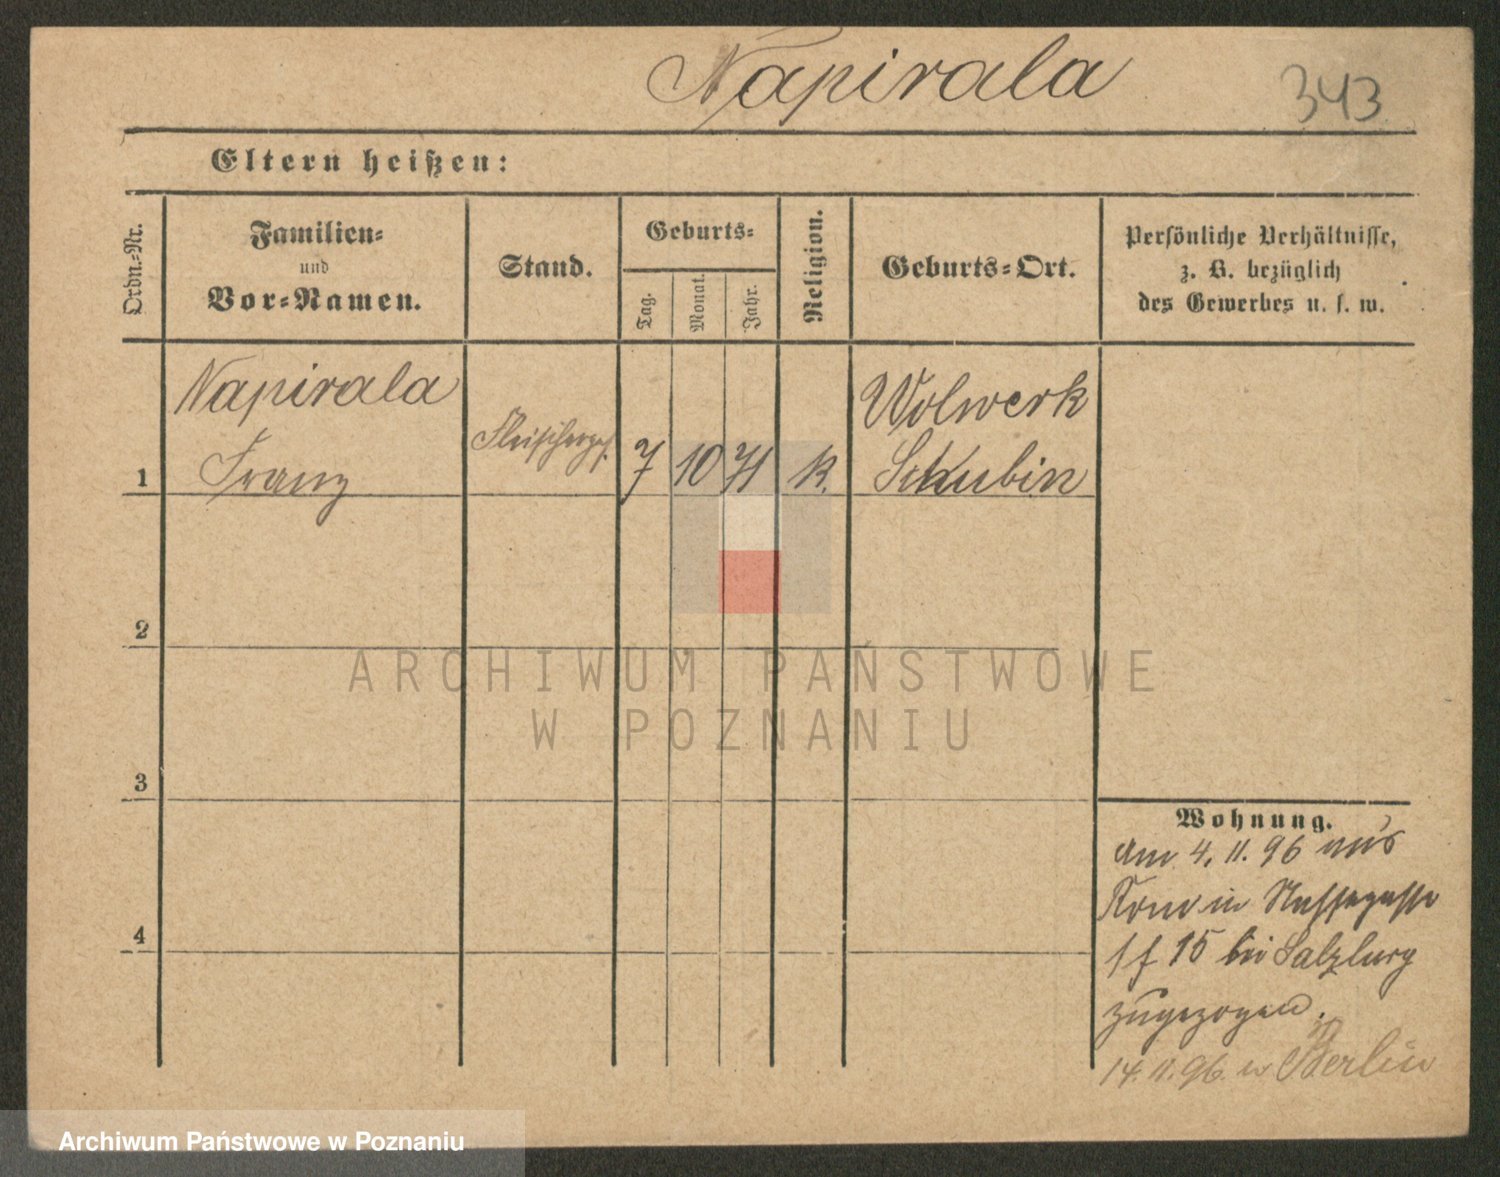 Napirala
343
Eltern heißen:
Ordn.-Nr.
Familien-
und
Vor-Namen.
Stand.
Geburts-
Tag.
Monat.
Jahr.
Religion.
Geburts-Ort.
Persönliche Verhältnisse,
z. B. bezüglich
des Gewerbes u. s. w.
1
Napirala
Franz
Fleischerges.
7
10
71
K.
Wolwerk
Schubin
2
3
4
Wohnung.
Am 4. 11. 96 aus
in
15 bei Salzburg
zugezogen.
14. 11. 96. Berlin
ARCHIWUM PAŃSTWOWE
W POZNANIU
Archiwum Państwowe w Poznaniu